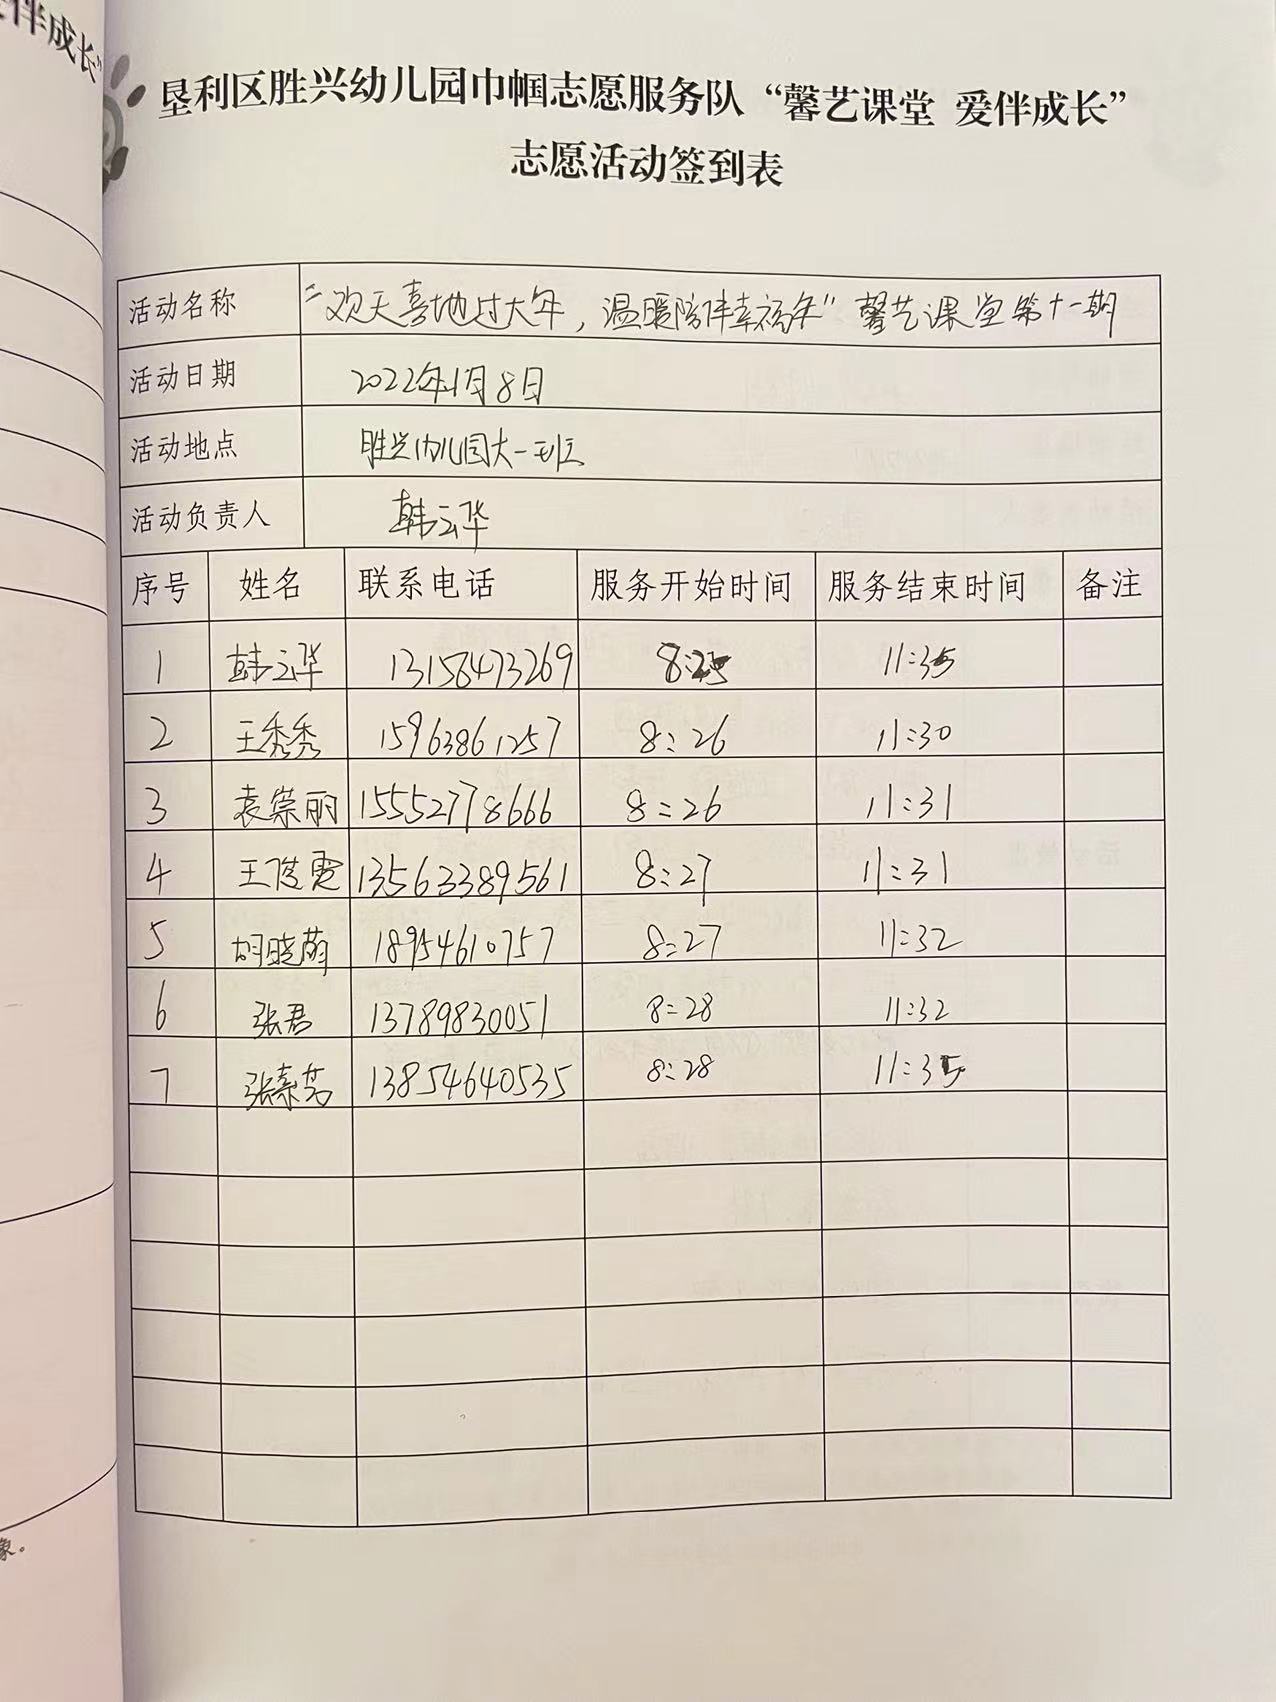 伴成长”
垦利区胜兴幼儿园巾帼志愿服务队“馨艺课堂 爱伴成长”
志愿活动签到表
活动名称 “欢天喜地过大年，温暖陪伴幸福年”馨艺课堂第十一期
活动日期 2022年1月8日
活动地点 胜兴幼儿园大一班
活动负责人 韩云华
序号 姓名 联系电话 服务开始时间 服务结束时间 备注
1 韩云华 13158473269 8:25 11:35
2 王秀秀 15963861257 8:26 11:30
3 袁崇丽 15552778666 8:26 11:31
4 王俊霞 13563389561 8:27 11:31
5 胡晓萌 18954610757 8:27 11:32
6 张君 13789830051 8:28 11:32
7 张素芳 13854640535 8:28 11:35
象。